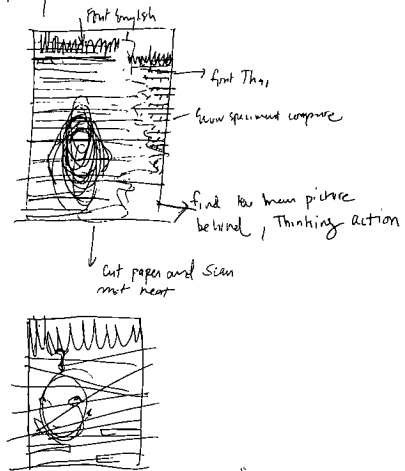 Font English
font Thai
specimen compare
find main picture
behind, Thinking action
Cut paper and Scan
not neat